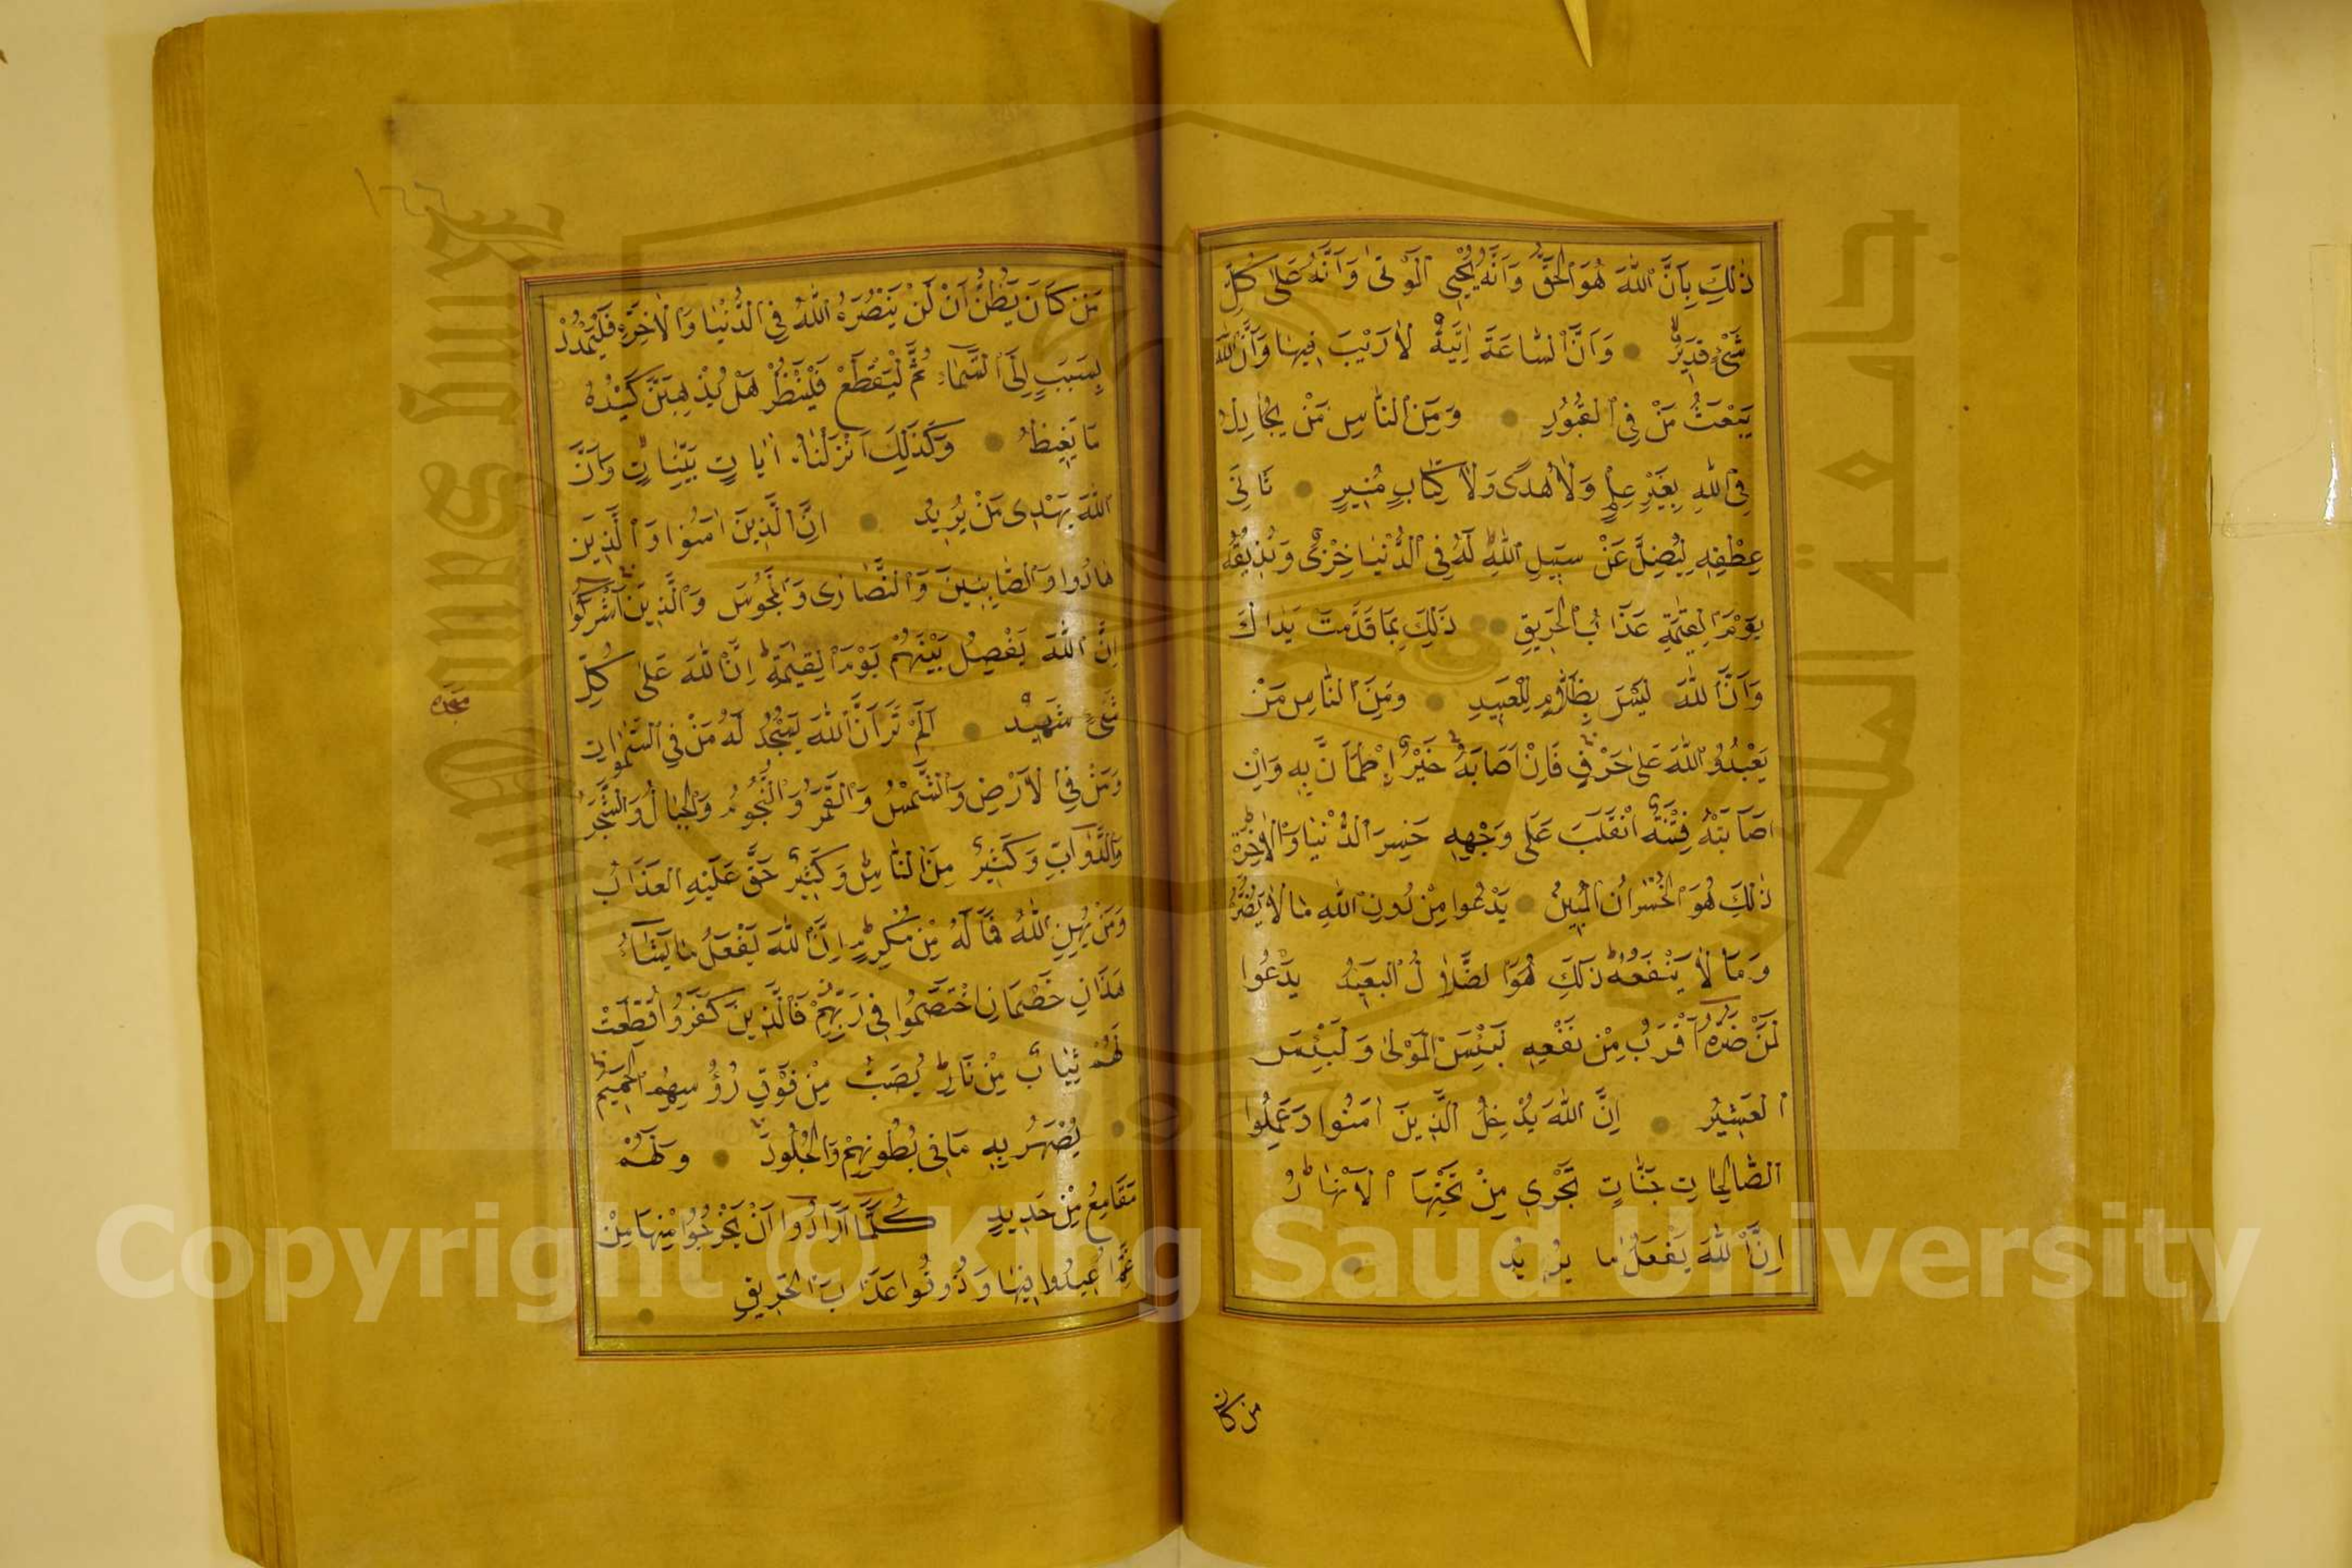 ذٰلِكَ بِاَنَّ اللّٰهَ هُوَ الْحَقُّ وَاَنَّهُ يُحْيِي الْمَوْتٰى وَاَنَّهُ عَلٰى كُلِّ
شَيْءٍ قَدِيرٌ وَاَنَّ السَّاعَةَ اٰتِيَةٌ لَا رَيْبَ فِيهَا وَاَنَّ اللّٰهَ
يَبْعَثُ مَنْ فِي الْقُبُورِ وَمِنَ النَّاسِ مَنْ يُجَادِلُ
فِي اللّٰهِ بِغَيْرِ عِلْمٍ وَلَا هُدًى وَلَا كِتَابٍ مُنِيرٍ ثَانِيَ
عِطْفِهِ لِيُضِلَّ عَنْ سَبِيلِ اللّٰهِ لَهُ فِي الدُّنْيَا خِزْيٌ وَنُذِيقُهُ
يَوْمَ الْقِيٰمَةِ عَذَابَ الْحَرِيقِ ذٰلِكَ بِمَا قَدَّمَتْ يَدَاكَ
وَاَنَّ اللّٰهَ لَيْسَ بِظَلَّامٍ لِلْعَبِيدِ وَمِنَ النَّاسِ مَنْ
يَعْبُدُ اللّٰهَ عَلٰى حَرْفٍ فَاِنْ اَصَابَهُ خَيْرٌ اِطْمَاَنَّ بِهِ وَاِنْ
اَصَابَتْهُ فِتْنَةٌ انْقَلَبَ عَلٰى وَجْهِهِ خَسِرَ الدُّنْيَا وَالْاٰخِرَةَ
ذٰلِكَ هُوَ الْخُسْرَانُ الْمُبِينُ يَدْعُوا مِنْ دُونِ اللّٰهِ مَا لَا يَضُرُّهُ
وَمَا لَا يَنْفَعُهُ ذٰلِكَ هُوَ الضَّلَالُ الْبَعِيدُ يَدْعُوا
لَمَنْ ضَرُّهُ اَقْرَبُ مِنْ نَفْعِهِ لَبِئْسَ الْمَوْلٰى وَلَبِئْسَ
الْعَشِيرُ اِنَّ اللّٰهَ يُدْخِلُ الَّذِينَ اٰمَنُوا وَعَمِلُوا
الصَّالِحَاتِ جَنَّاتٍ تَجْرِي مِنْ تَحْتِهَا الْاَنْهَارُ
اِنَّ اللّٰهَ يَفْعَلُ مَا يُرِيدُ
من كان
١٢٢
مَنْ كَانَ يَظُنُّ اَنْ لَنْ يَنْصُرَهُ اللّٰهُ فِي الدُّنْيَا وَالْاٰخِرَةِ فَلْيَمْدُدْ
بِسَبَبٍ اِلَى السَّمَاءِ ثُمَّ لْيَقْطَعْ فَلْيَنْظُرْ هَلْ يُذْهِبَنَّ كَيْدُهُ
مَا يَغِيظُ وَكَذٰلِكَ اَنْزَلْنَاهُ اٰيَاتٍ بَيِّنَاتٍ وَاَنَّ
اللّٰهَ يَهْدِي مَنْ يُرِيدُ اِنَّ الَّذِينَ اٰمَنُوا وَالَّذِينَ
هَادُوا وَالصَّابِئِينَ وَالنَّصَارٰى وَالْمَجُوسَ وَالَّذِينَ اَشْرَكُوا
اِنَّ اللّٰهَ يَفْصِلُ بَيْنَهُمْ يَوْمَ الْقِيٰمَةِ اِنَّ اللّٰهَ عَلٰى كُلِّ
شَيْءٍ شَهِيدٌ اَلَمْ تَرَ اَنَّ اللّٰهَ يَسْجُدُ لَهُ مَنْ فِي السَّمٰوَاتِ
سجده
وَمَنْ فِي الْاَرْضِ وَالشَّمْسُ وَالْقَمَرُ وَالنُّجُومُ وَالْجِبَالُ وَالشَّجَرُ
وَالدَّوَآبُّ وَكَثِيرٌ مِنَ النَّاسِ وَكَثِيرٌ حَقَّ عَلَيْهِ الْعَذَابُ
وَمَنْ يُهِنِ اللّٰهُ فَمَا لَهُ مِنْ مُكْرِمٍ اِنَّ اللّٰهَ يَفْعَلُ مَا يَشَاءُ
هٰذَانِ خَصْمَانِ اخْتَصَمُوا فِي رَبِّهِمْ فَالَّذِينَ كَفَرُوا قُطِّعَتْ
لَهُمْ ثِيَابٌ مِنْ نَارٍ يُصَبُّ مِنْ فَوْقِ رُؤُسِهِمُ الْحَمِيمُ
يُصْهَرُ بِهِ مَا فِي بُطُونِهِمْ وَالْجُلُودُ وَلَهُمْ
مَقَامِعُ مِنْ حَدِيدٍ كُلَّمَا اَرَادُوا اَنْ يَخْرُجُوا مِنْهَا مِنْ
غَمٍّ اُعِيدُوا فِيهَا وَذُوقُوا عَذَابَ الْحَرِيقِ
جامعة الملك سعود
King Saud University
1957
Copyright © King Saud University